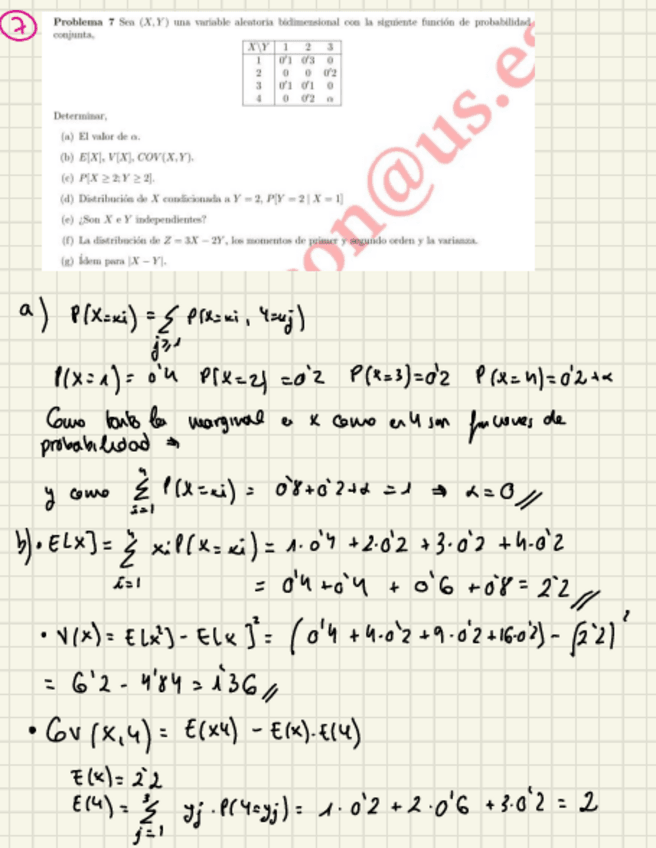 7
Problema 7 Sea (X, Y) una variable aleatoria bidimensional con la siguiente función de probabilidad
conjunta,
X\Y 1 2 3
1 0'1 0'3 0
2 0 0 0'2
3 0'1 0'1 0
4 0 0'2 α
Determinar,
(a) El valor de α.
(b) E[X], V[X], COV(X,Y).
(c) P[X ≥ 2; Y ≥ 2].
(d) Distribución de X condicionada a Y = 2, P[Y = 2 | X = 1]
(e) ¿Son X e Y independientes?
(f) La distribución de Z = 3X − 2Y, los momentos de primer y segundo orden y la varianza.
(g) Ídem para |X − Y|.
on@us.es
a) P(X=xi) = Σ j≥1 P(X=xi, Y=yj)
P(X=1) = 0'4 P(X=2) = 0'2 P(X=3)=0'2 P(X=4)=0'2+α
Como tanto la marginal e x como en y son funciones de
probabilidad ⇒
y como Σ i=1 4 P(X=xi) = 0'8+0'2+α = 1 ⇒ α=0 //
b) • E[X] = Σ i=1 4 xi P(X=xi) = 1·0'4 + 2·0'2 + 3·0'2 + 4·0'2
= 0'4 + 0'4 + 0'6 + 0'8 = 2'2 //
• V(X) = E[X²] - E[X]² = (0'4 + 4·0'2 + 9·0'2 + 16·0'2) - (2'2)²
= 6'2 - 4'84 = 1'36 //
• Cov(X,Y) = E(XY) - E(X)·E(Y)
E(X) = 2'2
E(Y) = Σ j=1 3 yj·P(Y=yj) = 1·0'2 + 2·0'6 + 3·0'2 = 2